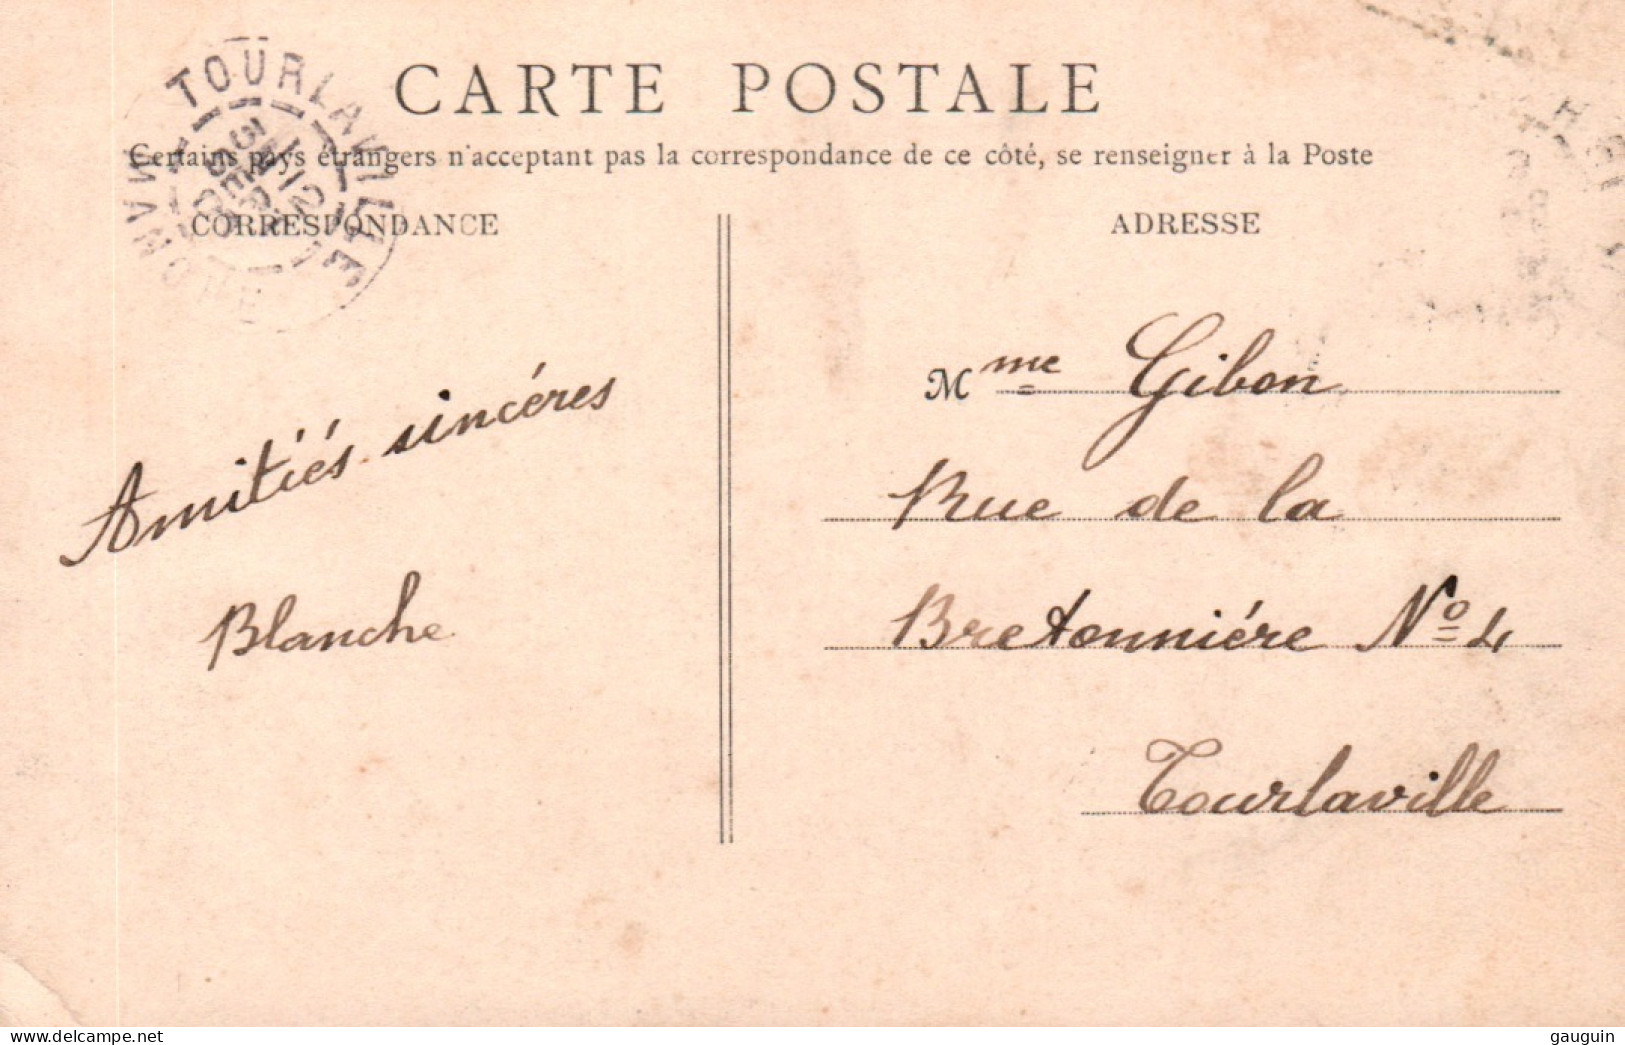 CARTE POSTALE
Certains pays étrangers n'acceptant pas la correspondance de ce côté, se renseigner à la Poste
TOURLAVILLE
CORRESPONDANCE
ADRESSE
Mme Gibon
Rue de la
Bretonniére No 4
Tourlaville
Amitiés sincéres
Blanche
delcampe.net
gauguin